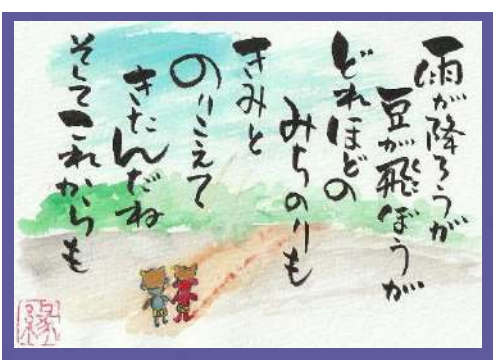 雨が降ろうが
豆が飛ぼうが
どれほどの
みちのりも
きみと
のりこえて
きたんだね
そしてこれからも
縁